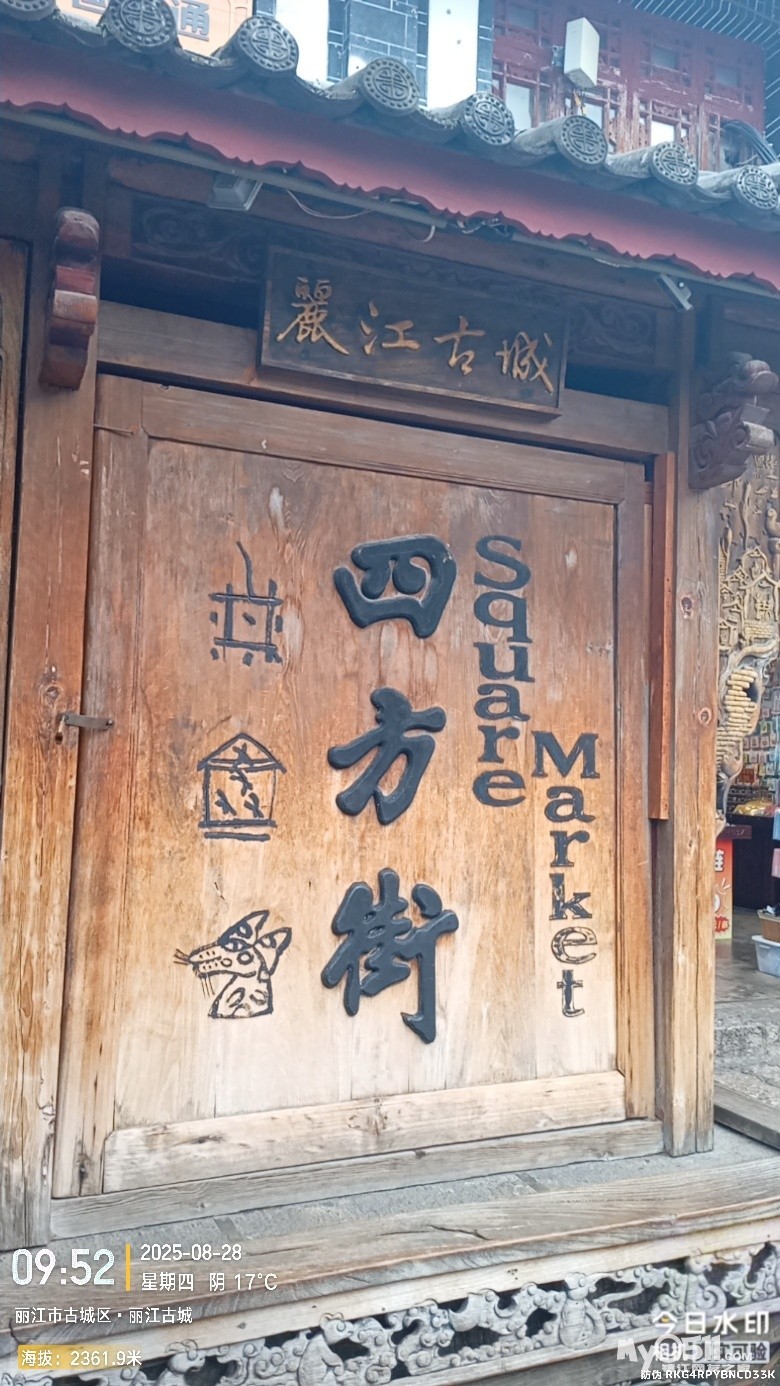 麗江古城
四方街
Square
Market
09:52
2025-08-28
星期四 阴 17°C
丽江市古城区·丽江古城
海拔：2361.9米
今日水印
防伪 RKG4RPYBNCD33K